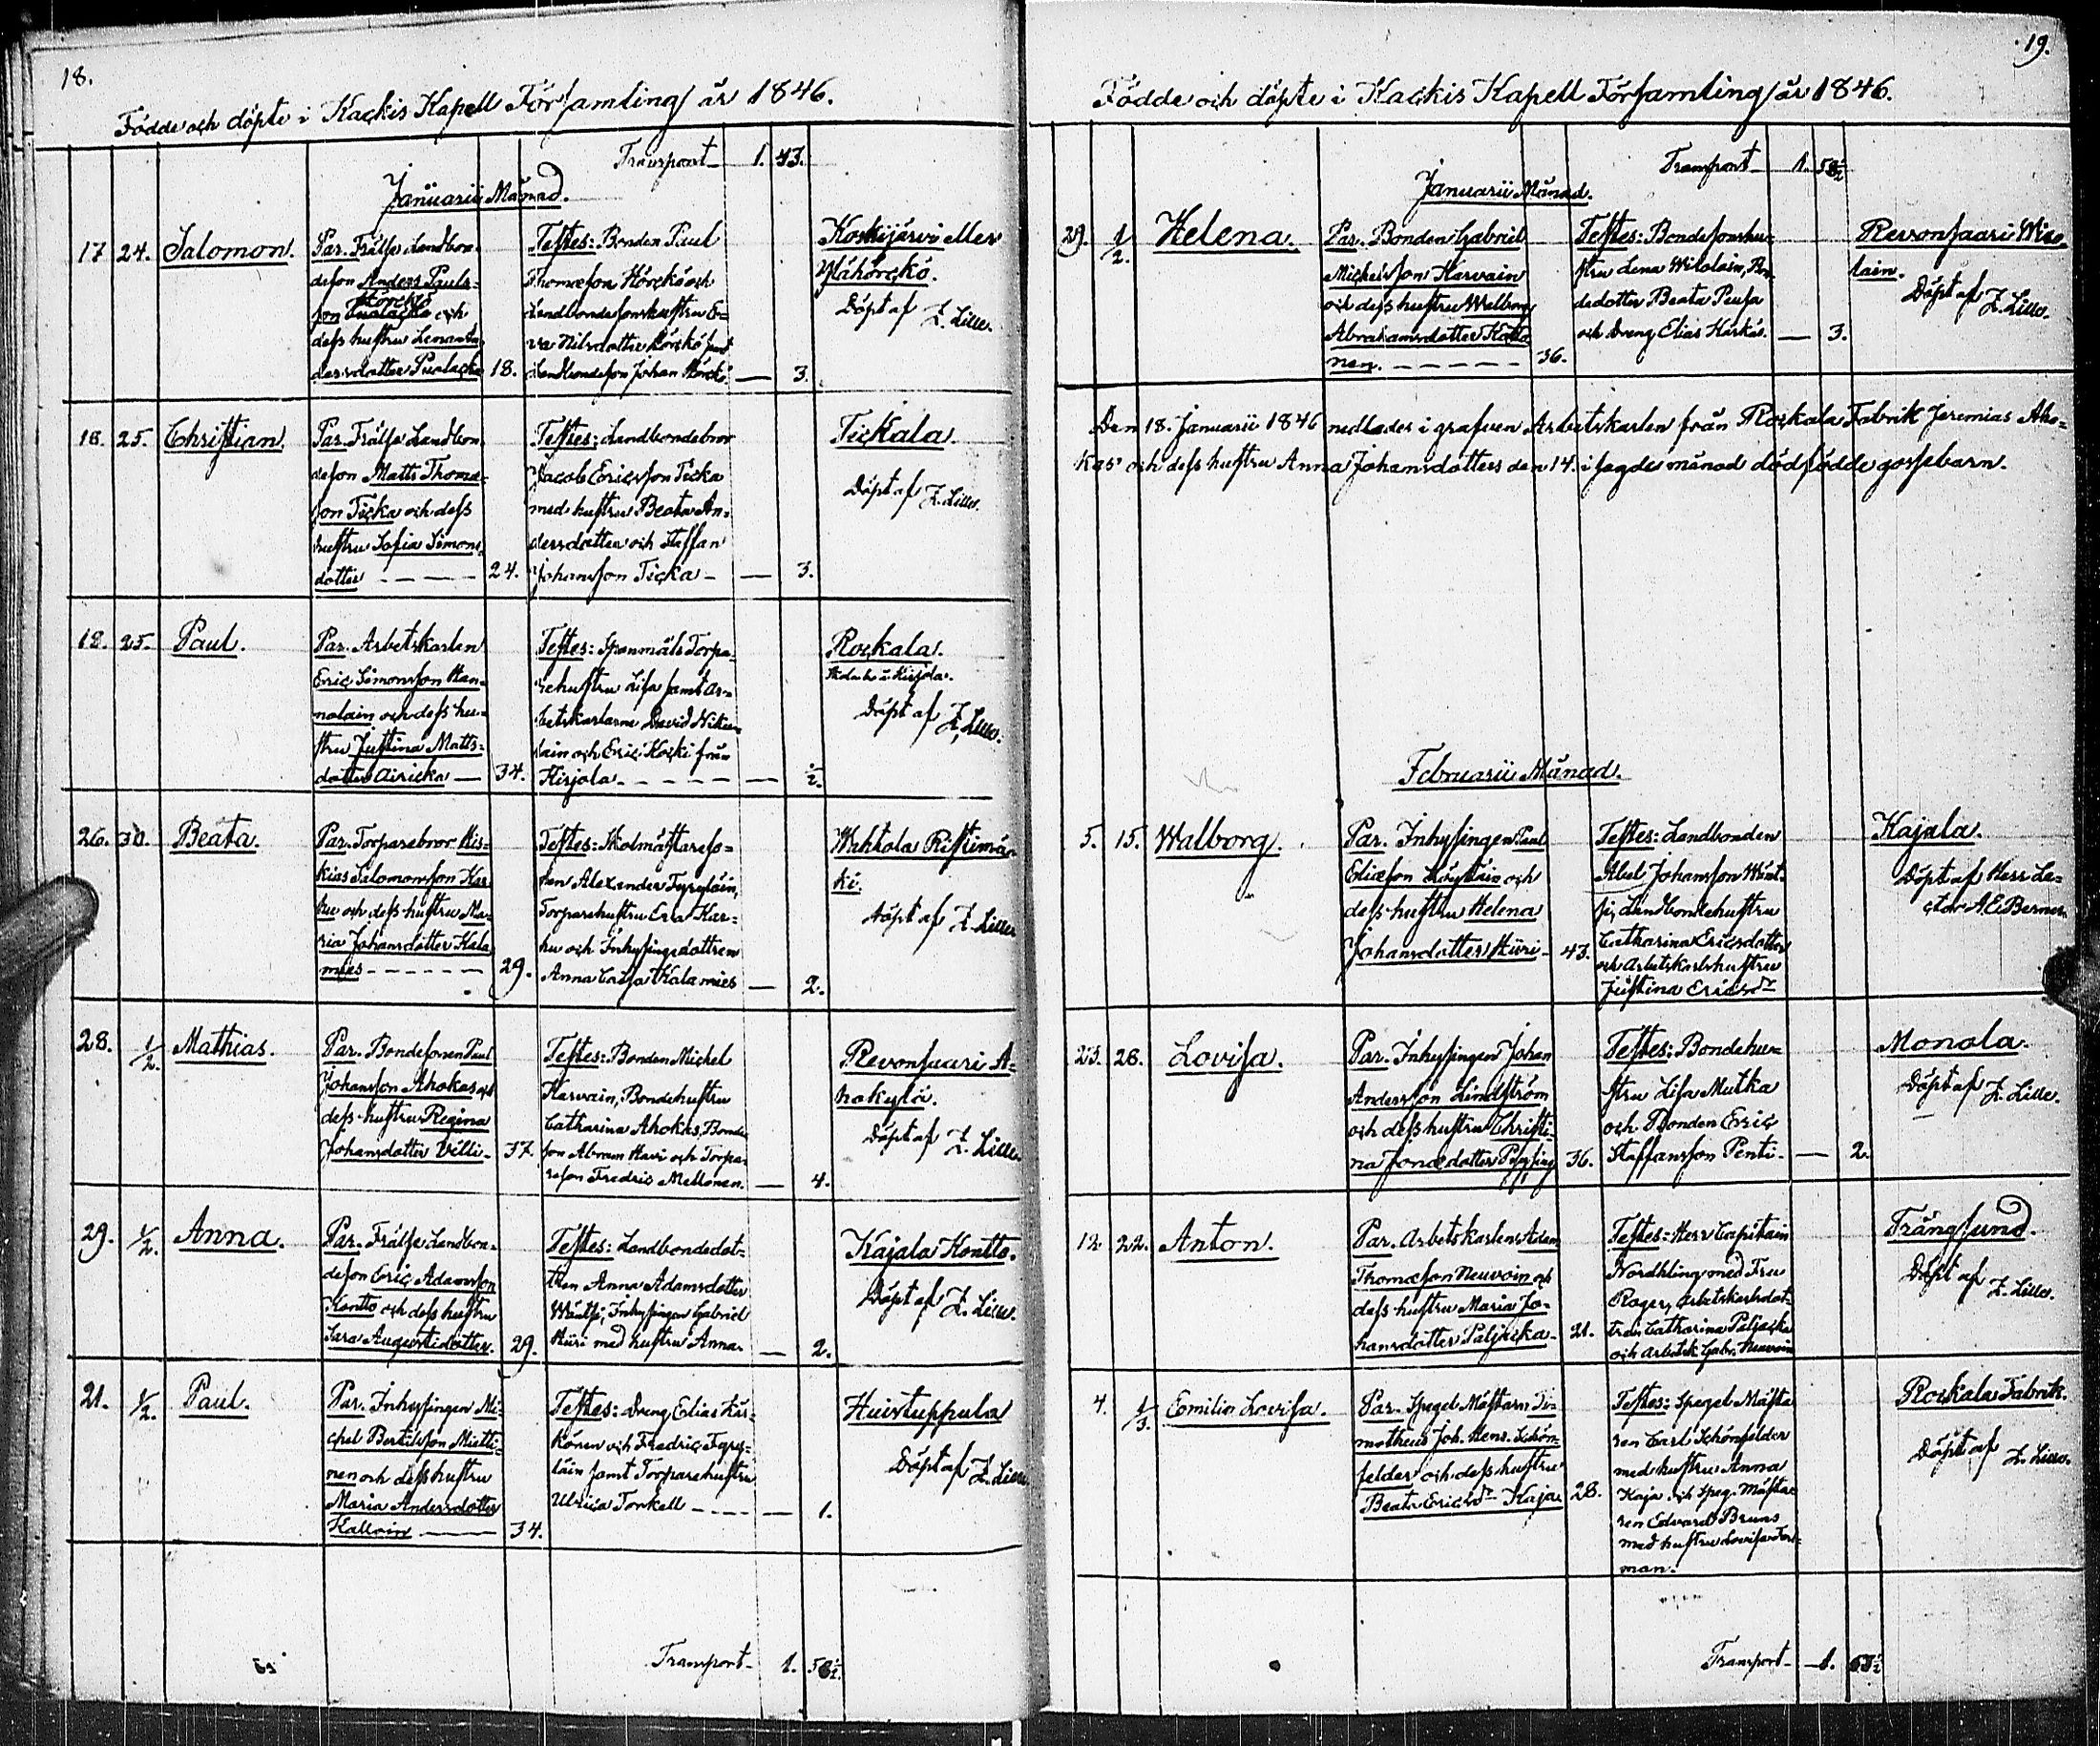 18.
Födde och döpte i Kackis Kapell Församling år 1846.
Transport 1. 43.
Januarii Månad.
17 24. Salomon.
Par. Frälse Landbon-
deson Anders Pauls-
Hörckö
son och
dess hustru Lena An-
dersdotter 18.
Testes: Bonden Paul
Thomæson Hörckö och
Landbondesonhustru E-
va Nilsdotter Hörckö samt
Landbondeson Johan Hörckö — 3.
Koskijärvi eller
Ylähörckö.
Döpt af Z. Lilles.
18. 25. Christian.
Par. Frälse Landbon-
deson Matts Thomæ-
son Ticka och dess
hustru Sofia Simons-
dotter - - - - 24.
Testes: Landbondebror
Jacob Ericsson Ticka
med hustru Beata An-
dersdotter och Staffan
Johansson Ticka - — 3.
Tickala.
Döpt af Z. Lilles.
18. 25. Paul.
Par. Arbetskarlen
Eric Simonsson Han-
nolain och dess hu-
stru Justina Matts-
dotter Airicka — 34.
Testes: Spanmåls Torpa-
rehustru Lisa samt Ar-
betskarlarne David Niku-
lain och Eric Kocki från
Kirjola - - - - - — ½.
Rockala.
Kirjola.
Döpt af Z. Lilles.
26. 30. Beata.
Par. Torparebror His-
kias Salomonsson Kar-
hu och dess hustru Ma-
ria Johansdotter Kala-
mies - - - - - - 29.
Testes: Skolmästareso-
nen Alexander Tyryläin,
Torparehustru Eva Kar-
hu och Inhysingedottren
Anna Caisa Kalamies — 2.
Wahtola Ristimä-
ki.
Döpt af Z. Lilles
28. ½. Mathias.
Par. Bondesonen Paul
Johansson Ahokas och
dess hustru Regina
Johansdotter Villi- 37.
Testes: Bonden Michel
Karvain, Bondehustru
Catharina Ahokas, Bonde-
son Abram Havi och Torpa-
reson Fredric Mellonen. — 4.
Revonsaari A-
hokylä.
Döpt af Z. Lilles.
29. ½. Anna.
Par. Frälse Landbon-
deson Eric Adamsson
Kontto och dess hustru
Sara Augustidotter. 29.
Testes: Landbondedot-
tren Anna Adamsdotter
Wäntsi, Inhysingen Gabriel
Hüri med hustru Anna. — 2.
Kajala Kontto.
Döpt af Z. Lilles.
21. ½. Paul.
Par. Inhysingen Mi-
chel Bertilsson Mietti-
nen och dess hustru
Maria Andersdotter
Kalloin — 34.
Testes: Dreng Elias Kär-
könen och Fredric Tyry-
läin samt Torparehustru
Ulrica Torkell - - - — 1.
Huistuppula
Döpt af Z. Lilles
Transport- 1. 58½.
19.
Födde och döpte i Kackis Kapell Församling år 1846.
Transport 1. 58½
Januarii Månad.
29. ½. Helena.
Par. Bonden Gabriel
Michelsson Karvain
och dess hustru Walborg
Abrahamsdotter Hatto-
nen. - - - - - 36.
Testes: Bondesonshu-
stru Lena Wilolain, Bon-
dedotter Beata Peusa
och Dreng Elias Härkö. — 3.
Revonsaari Wiro-
lain.
Döpt af Z. Lilles.
Den 18. Januarii 1846 nedlades i grafven Arbetskarlen från Rockala Fabrik Jeremias Aho-
kas' och dess hustru Anna Johansdotters den 14. i sagde månad dödfödde gossebarn.
Februarii Månad.
5. 15. Walborg.
Par. Inhysingen Paul
Eliæson och
dess hustru Helena
Johansdotter Hüri- 43.
Testes: Landbonden
Abel Johansson Wänt-
si, Landbondehustru
Catharina Ericsdotter
och Arbetskarlshustru
Justina Ericsdr
Kajala.
Döpt af Herr Le-
ctor A E Berner
23. 28. Lovisa.
Par. Inhysingen Johan
Andersson Lindström
och dess hustru Christi-
na Jonædotter Pysysing 36.
Testes: Bondehu-
stru Lisa Mutka
och Bonden Eric
Staffansson Penti- — 2.
Monola.
Döpt af Z. Lilles.
12. 22. Anton.
Par. Arbetskarlen Adam
Thomæson Neuvoin och
dess hustru Maria Jo-
hansdotter Paljacka- 21.
Testes: Herr Capitain
Nordhling med Fru
Roger, Arbetskarlsdot-
tren Catharina Paljacka
och Arbetsk. Gabr. Neuvoin
Trångsund.
Döpt af Z. Lilles.
4. ⅓. Emilia Lovisa.
Par. Spegel Mästaren Ti-
motheus Joh. Hens. Schön-
felder och dess hustru
Beata Ericsdr Kaja 28.
Testes: Spegel Mästa-
ren Carl Schönfelder
med hustru Anna
Kaja och Speg. Mästa-
ren Edvard Bruns
med hustru Lovisa
man.
Rockala Fabrik.
Döpt af Z. Lilles.
Transport- 1. 63½